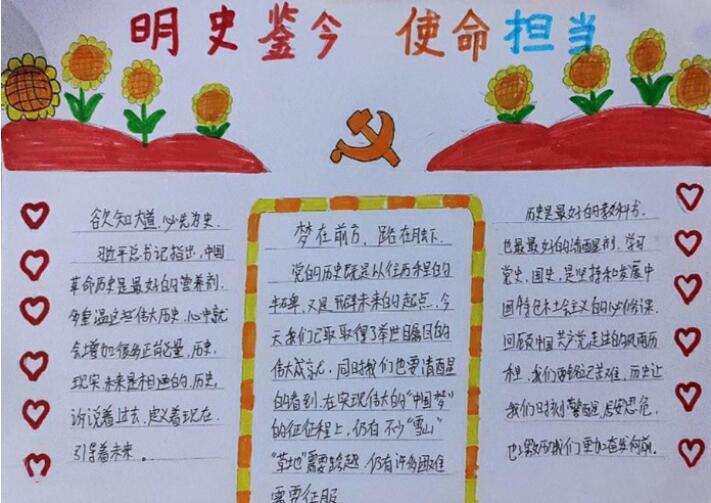 明史鉴今 使命担当
欲知大道,必先为史.
习近平总书记指出,中国
革命历史是最好的营养剂.
多重温这些伟大历史,心中就
会增加很多正能量,历史.
现实.未来是相通的,历史,
诉说着过去,定义着现在.
引导着未来。
梦在前方,路在脚下.
党的历史既是以往历程的
丰碑,又是开辟未来的起点,今
天我们已取取得了举世瞩目的
伟大成就,同时我们也要清醒
的看到,在实现伟大的"中国梦"
的征征程上,仍有不少"雪山"
"草地"需要跨越,仍有许多困难
需要征服
历史是最好的教科书.
也最最好的清醒剂,学习
党史,国史,是坚持和发展中
国特色社会主义的必修课.
回顾中国共产党走过的风雨历
程,我们要铭记苦难,历史让
我们时刻警醒,居安思危,
也激励我们更加奋发向前.